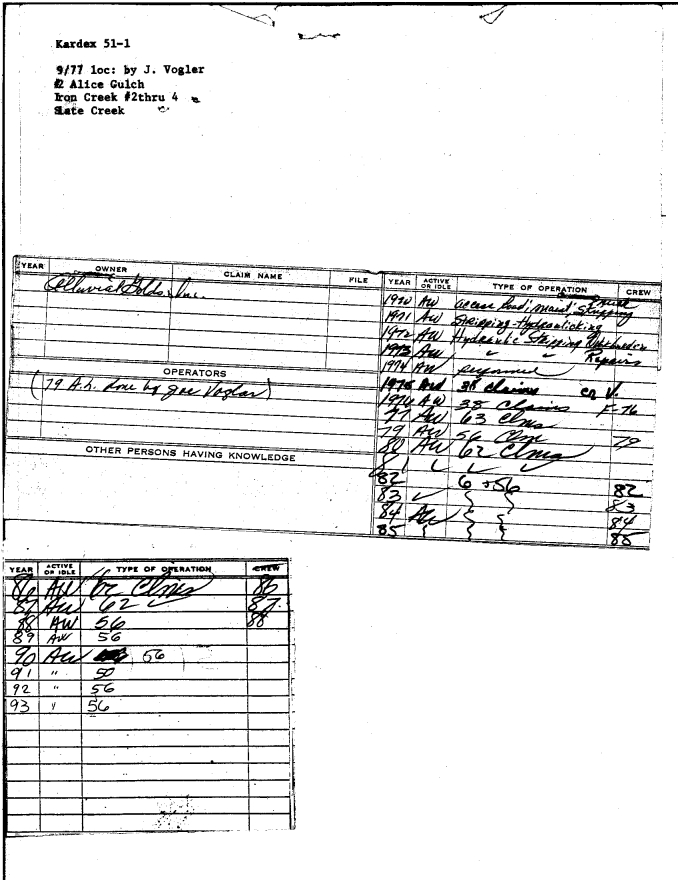 Kardex 51-1
9/77 loc: by J. Vogler
#2 Alice Gulch
Iron Creek #2thru 4
Slate Creek
YEAR OWNER CLAIM NAME FILE
Alluvial Golds, Inc.
OPERATORS
(79 A.L. done by Joe Voglar)
OTHER PERSONS HAVING KNOWLEDGE
YEAR ACTIVE OR IDLE TYPE OF OPERATION CREW
1970 AW access Road, maint, Stripping
1971 AW Stripping-Hydraulicking
1972 AW Hydraulic Stripping
1973 AW " " Repairs
1974 AW personnel
1975 AW 38 claims
1976 AW 38 Claims F-76
77 AW 63 Clms
79 AW 56 Clm 79
80 AW 62 Clms
81 ✓ ✓ ✓
82 6 +56 82
83 ✓ 83
84 AW 84
85 85
YEAR ACTIVE OR IDLE TYPE OF OPERATION CREW
86 AW 62 Clms 86
87 AW 62 ✓ 87
88 AW 56 88
89 AW 56
90 AW 56
91 " 50
92 " 56
93 " 56